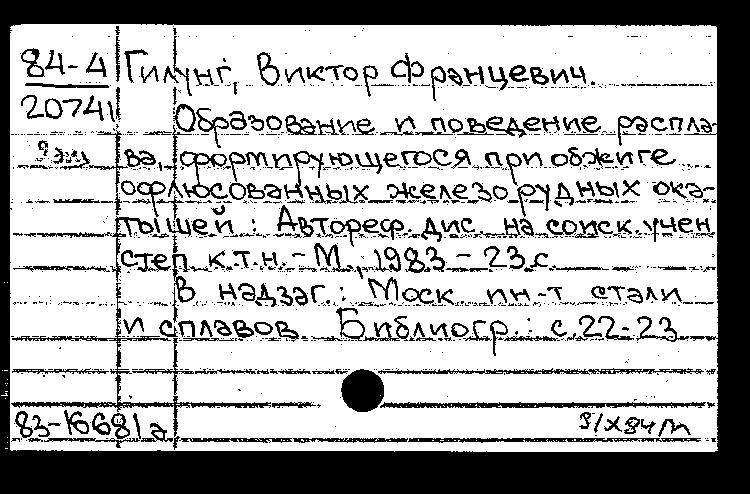 84-4 Гилунг, Виктор Францевич.
20741 Образование и поведение распла-
ва, формирующегося при обжиге
офлюсованных железорудных ока-
тышей: Автореф. дис. на соиск. учен.
степ. к.т.н. - М., 1983 - 23 с.
В надзаг.: Моск. ин-т стали
и сплавов. Библиогр.: с. 22-23
83-16681а